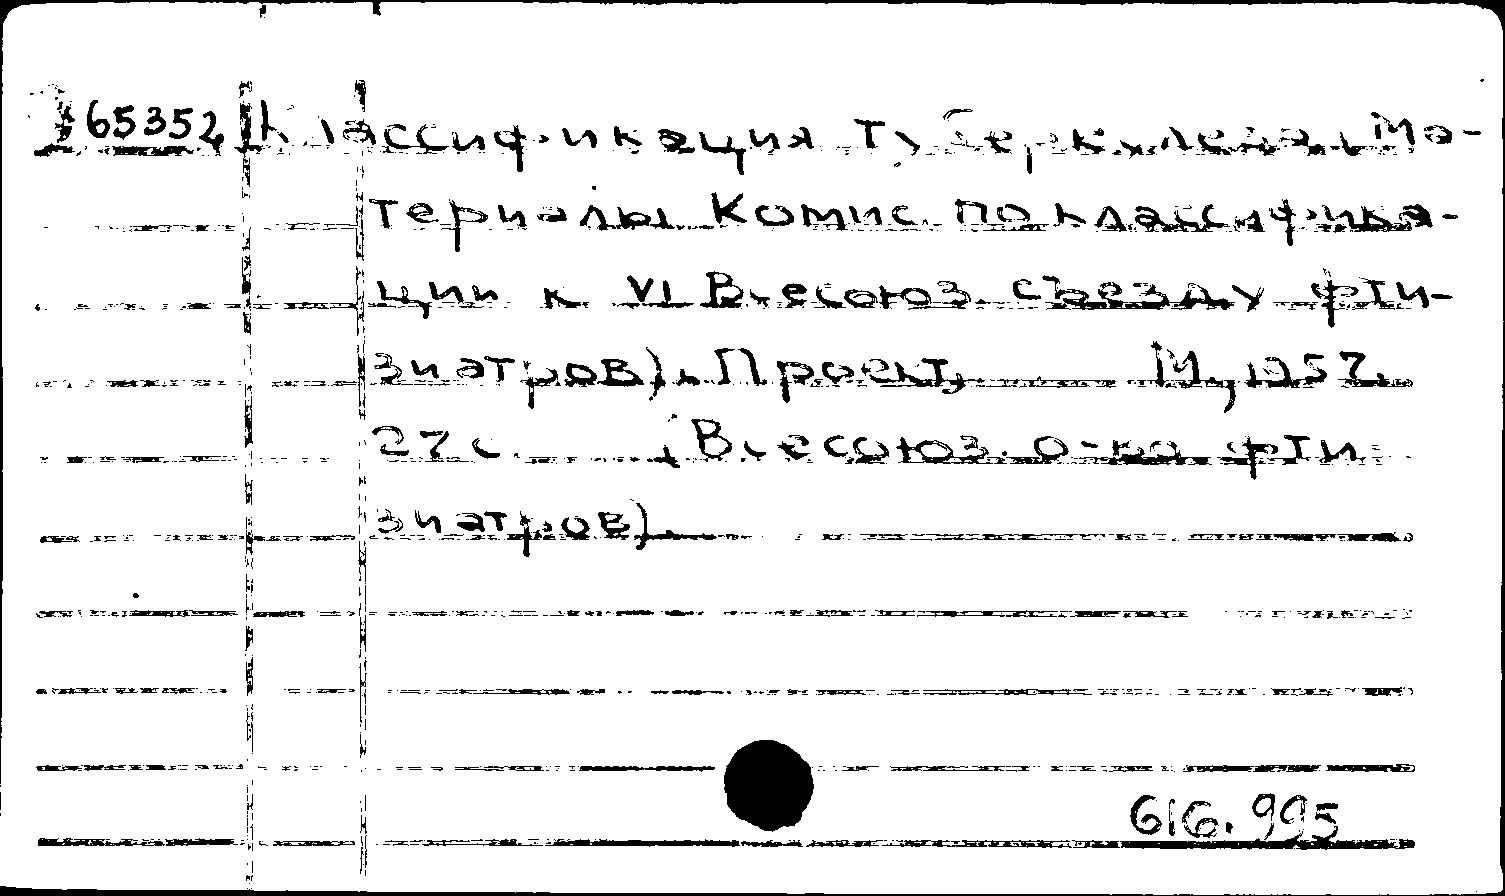 65352 Классификация туберкулеза. Ма-
териалы Комис. по классифика-
ции к VI Всесоюз. съезду фти-
зиатров). Проект. М., 1957.
27 с. (Всесоюз. о-во фти-
зиатров).
616.995